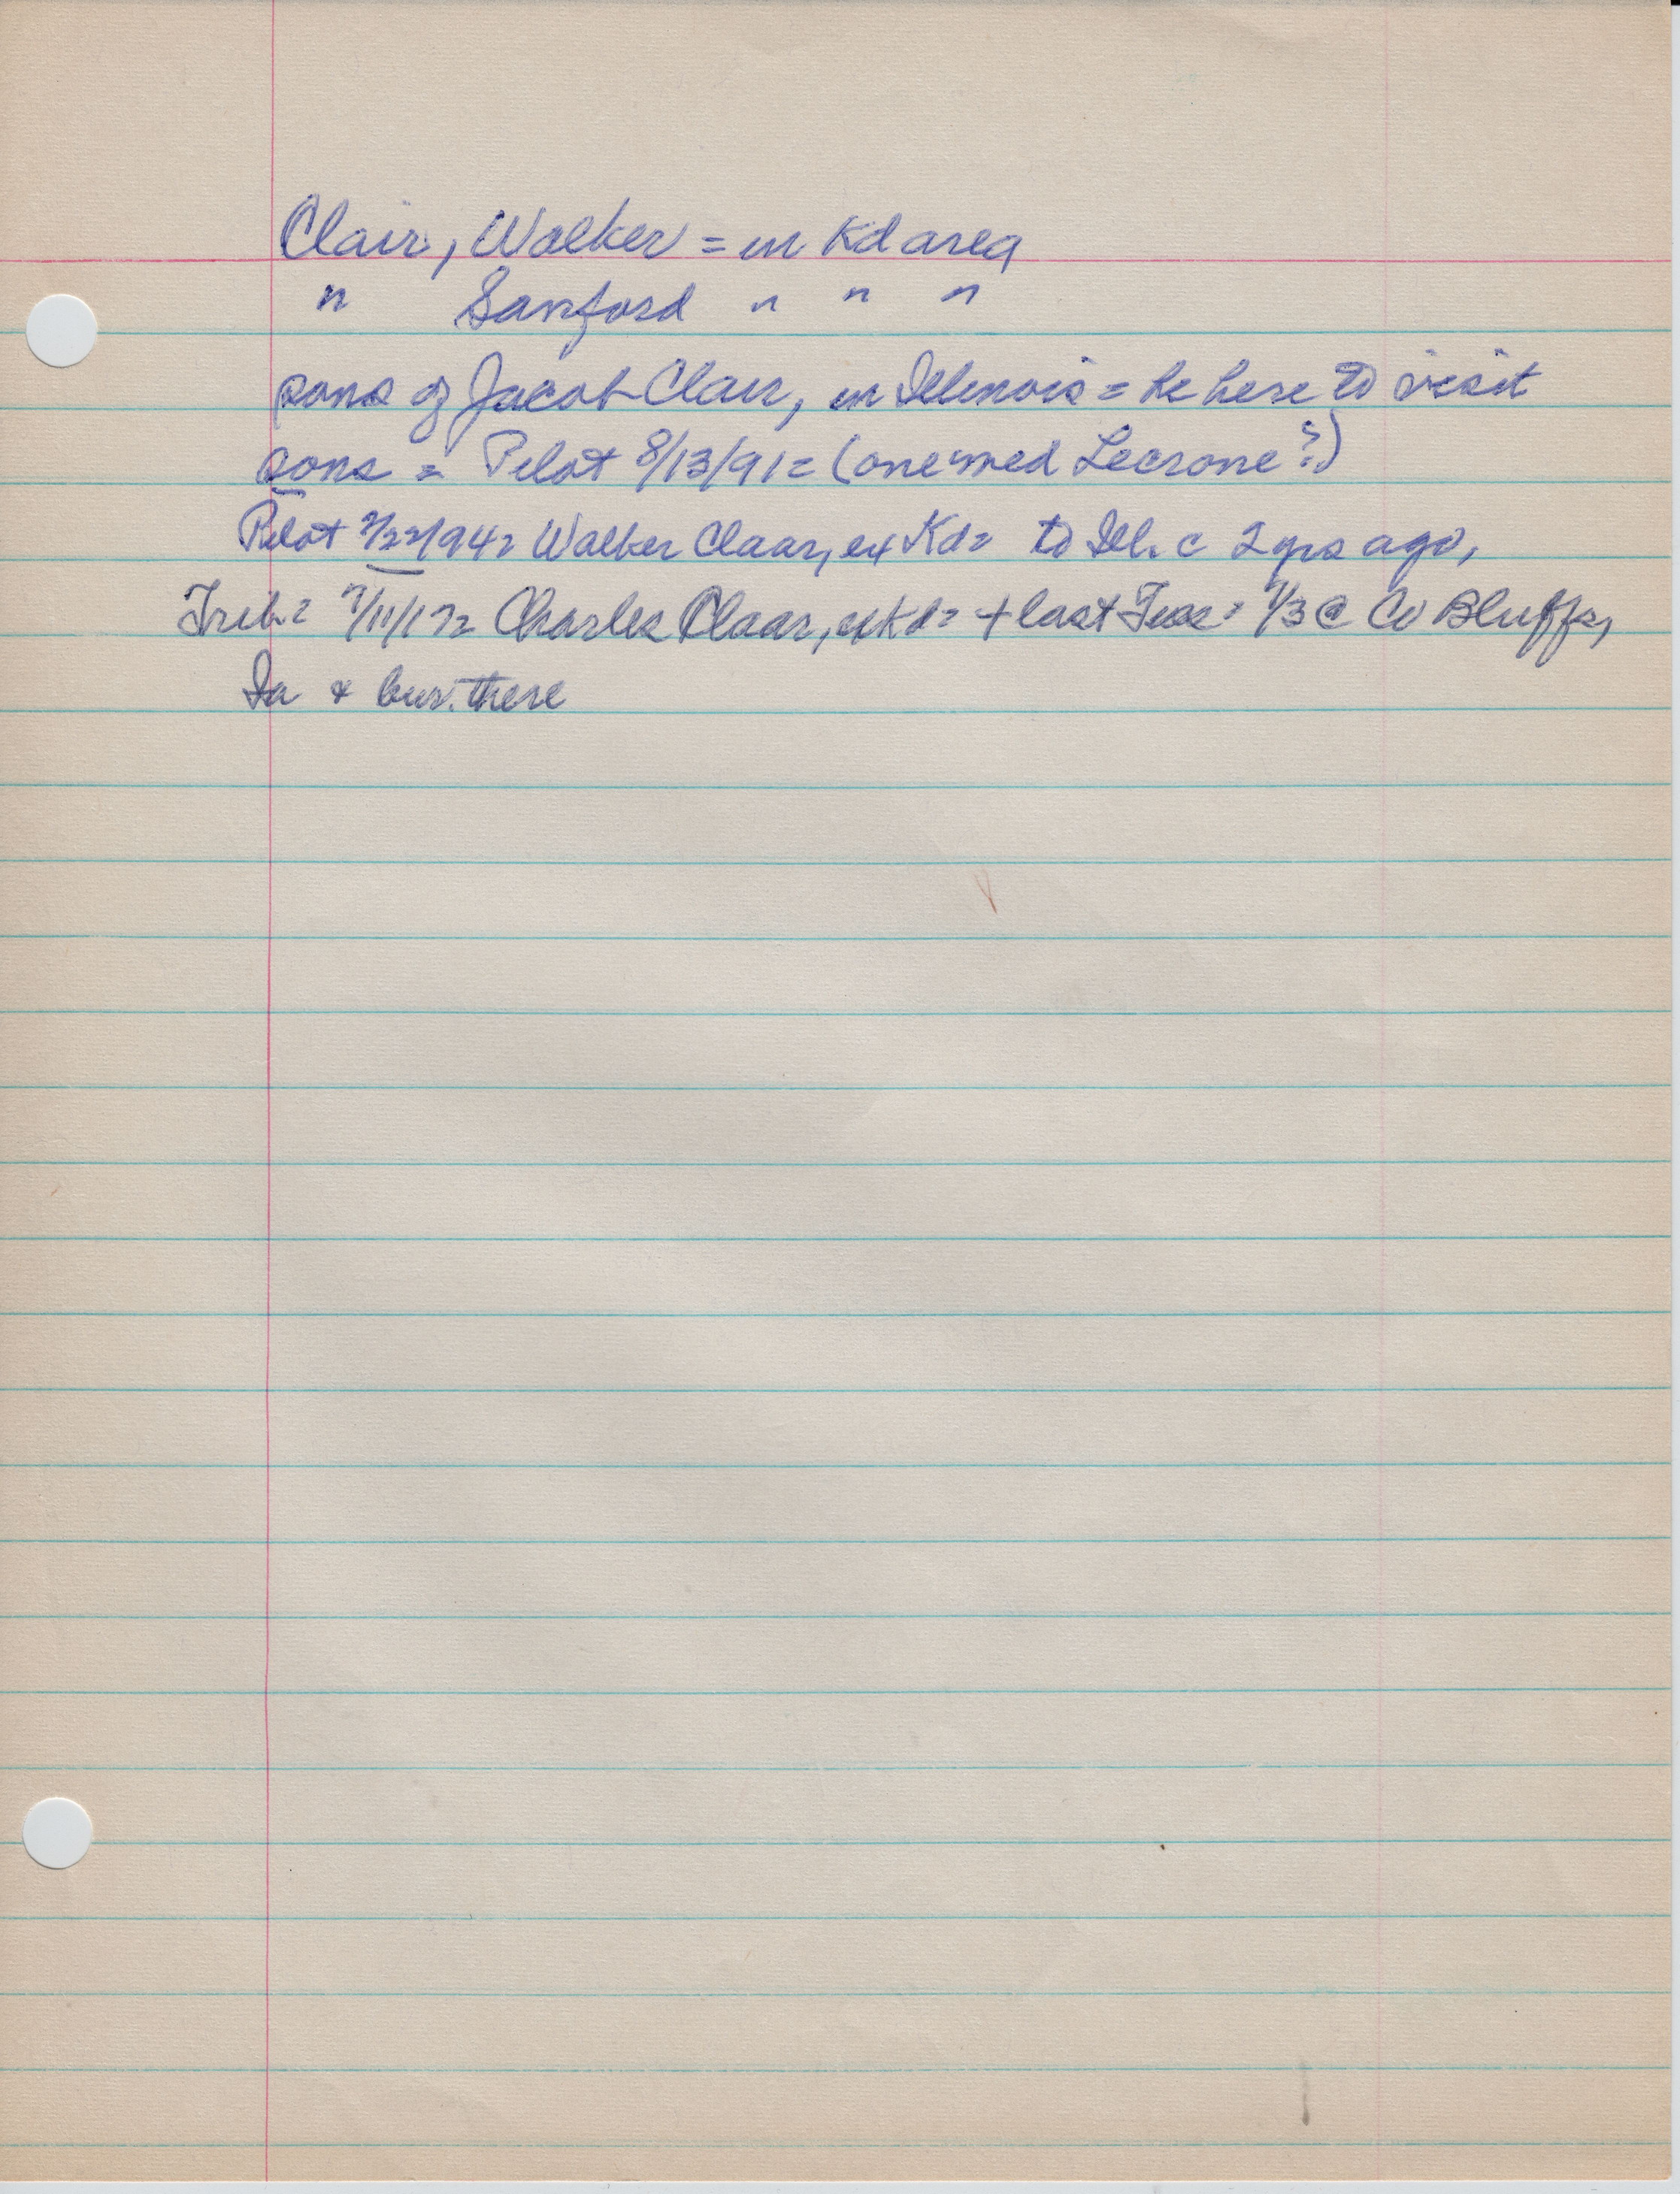 Clair, Walker = in Kd area
" Sanford " " "
sons of Jacob Clair, in Illinois = he here to visit
sons = Pilot 8/13/91 = (one med Lecrone?)
Pilot /22/94 = Walker Claar, ex Kd = to Ill. c 2 yrs ago,
Trib = 7/11/17 = Charles Claar, ex Kd = + last Tues = 7/3 @ Co Bluffs,
Ia & bur. there